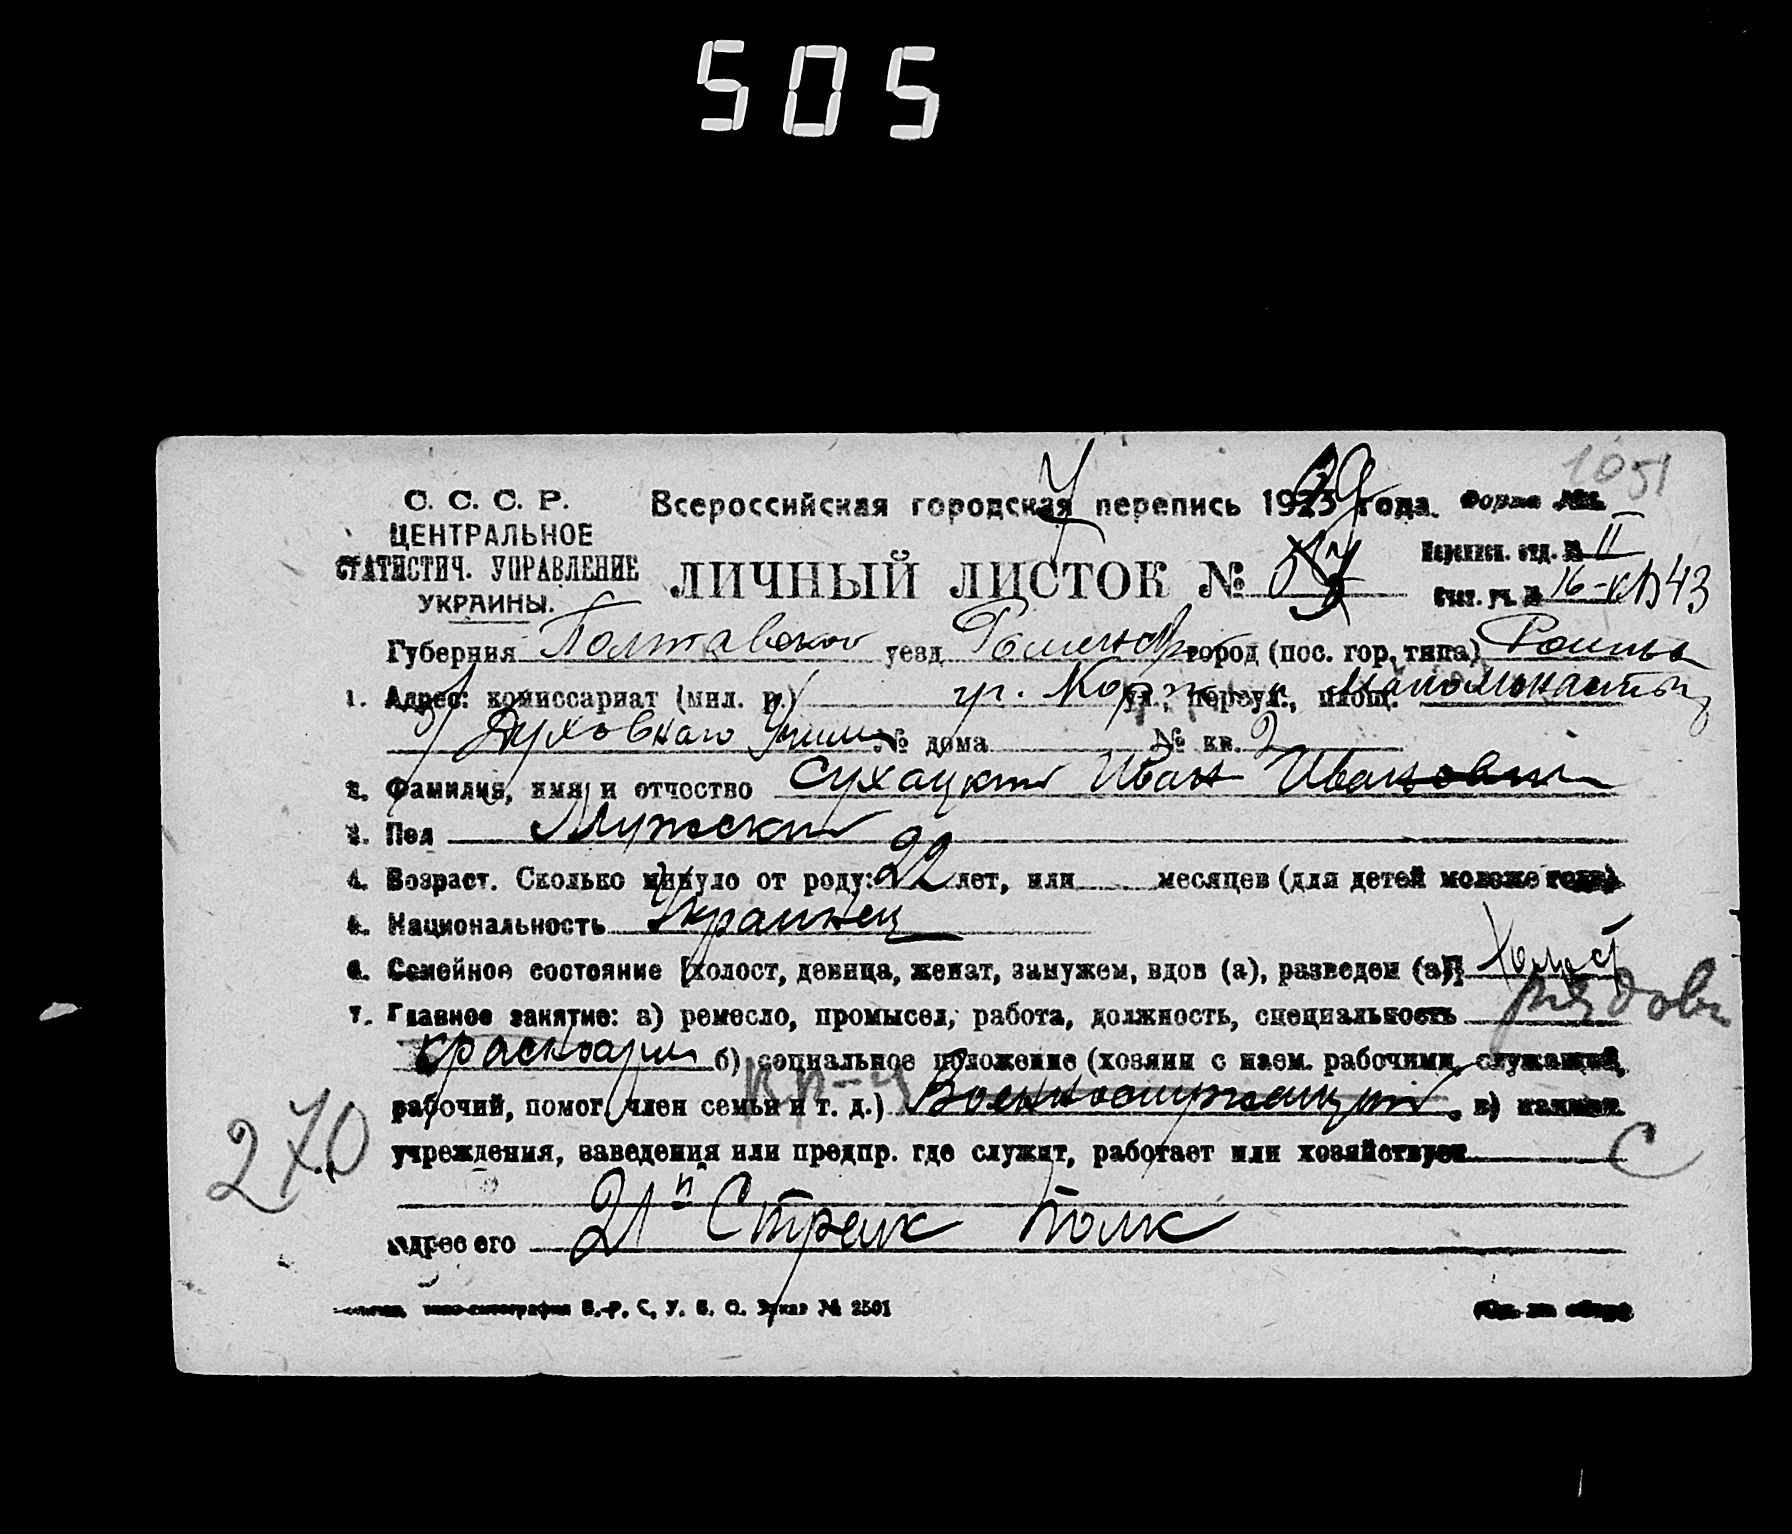 505
1051
С. С. С. Р.
ЦЕНТРАЛЬНОЕ
СТАТИСТИЧ. УПРАВЛЕНИЕ
УКРАИНЫ.
Всероссийская городская перепись 1923 года. Форма
ЛИЧНЫЙ ЛИСТОК №
Переписн. отд. № II
Счет. уч. № 16- 43
Губерния Полтавской уезд Роменск город (пос. гор. типа) Ромны
1. Адрес: комиссариат (мил. р.) ул., переул., площ.
Духовного Училищ № дома № кв. 2
2. Фамилия, имя и отчество Сухацкий Иван Иванович
3. Пол Мужской
4. Возраст. Сколько минуло от роду: 22 лет, или месяцев (для детей моложе года)
5. Национальность Украинец
6. Семейное состояние [холост, девица, женат, замужем, вдов (а), разведен (а)]: Холост
7. Главное занятие: а) ремесло, промысел, работа, должность, специальность рядов
красноарм б) социальное положение (хозяин с наем. рабочими, служащий,
рабочий, помог. член семьи и т. д.) Военнослужащий, в) наимен.
учреждения, заведения или предпр. где служит, работает или хозяйствует С
270
21й Стрелк Полк
Адрес его
В.-Р. С. У. В. О. Заказ № 2501